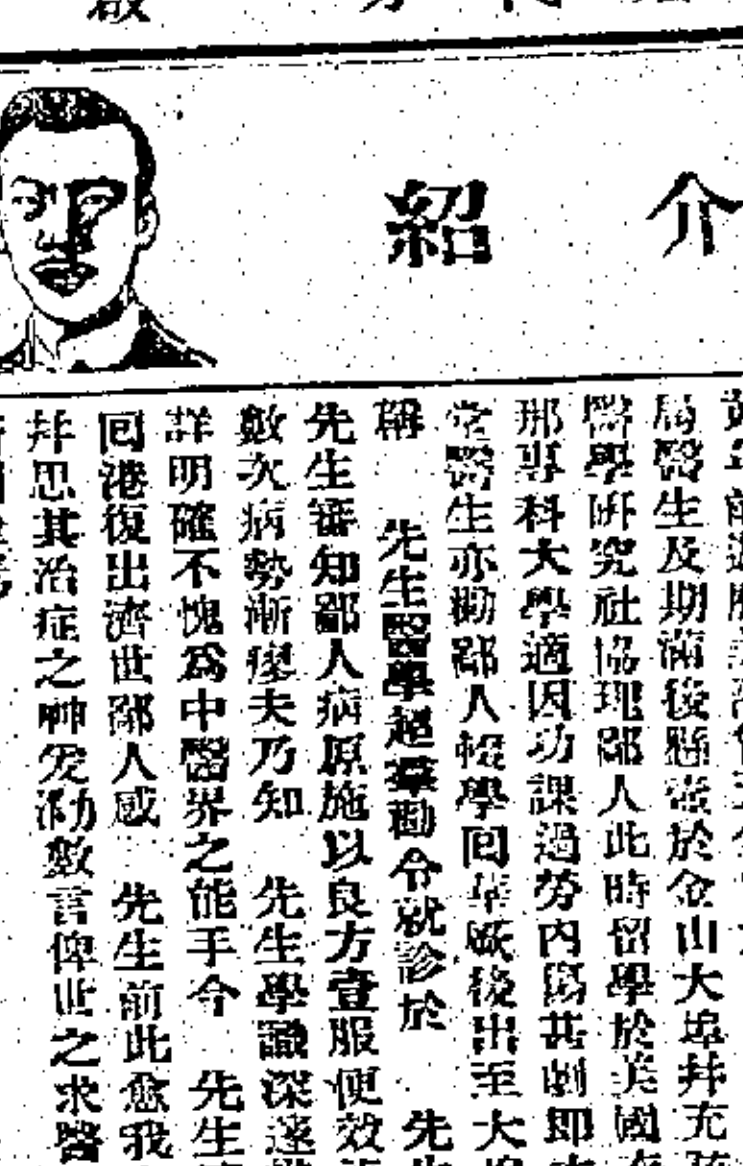 介紹
局醫生及期滿後懸壺於金山大埠并充
醫學研究社協理鄙人此時留學於美國
專科大學適因功課過勞內傷甚劇即
堂醫生亦勸鄙人輟學回華厥後出至大埠
稱 先生醫學超羣勸令就診於 先生
先生審知鄙人病原施以良方壹服便效
數次病勢漸瘳夫乃知 先生學識深邃
詳明確不愧為中醫界之能手今 先生
回港復出濟世鄙人感 先生前此愈我
并思其治症之神爰泐數言俾世之求醫